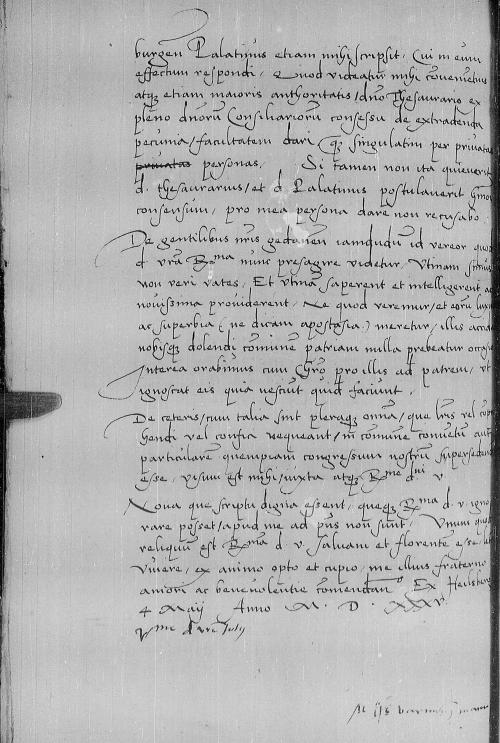 burgen̄ Palatinus etiam mihi scripsit. Cui in eum
effectum respondi. Quod videatur mihi conveniētius
atq3 etiam maioris authoritatis / dn̄o Thesaurario ex
pleno dn̄orum Consiliariorum consessu de extradenda
pecunia / facultatem dari q̄3 singulatim per privatas
privatas personas. Si tamen non ita quieverit
d. thesaurarius / et d. Palatinus postulaverit
consensum, pro mea persona dare non recusabo.
De gentilibus nr̄is gedanen̄ iamdudum id vereor quod
d. vr̄a R̄ma nunc presagire videtur. Utinam simus
non veri vates. Et utinā saperent et intelligerent ac
novissima providerent. Ne quod veremur / et eorum luxu
ac superbia (ne dicam apostasia) meretur / illis accidat
nobisq3 dolendi com̄unē patriam nulla prebeatur occasio
Interea orabimus cum Chr̄o pro illis ad patrem, ut
ignoscat eis quia nesciunt quid faciunt.
De ceteris / cum talia sint pleraq3 omn̄ia / que lr̄is vel
hendi vel confici nequeant / in com̄une conventum aut
particularem quempiam congressum nostrum supersedendum
esse, visum est mihi / iuxta atq3 R̄me d. v.
Nova que scriptu digna essent, queq3 R̄ma d. v. igno
rare posset / apud me ad p̄ns non sunt. Unum quod
reliquum est R̄mā d. v. salvam et florentē esse, et
vivere, ex animo opto et cupio, me illius fraterno
amori ac benevolentie com̄endan̄. Ex Heilsberg
4 Maij Anno M. D. XXXV.